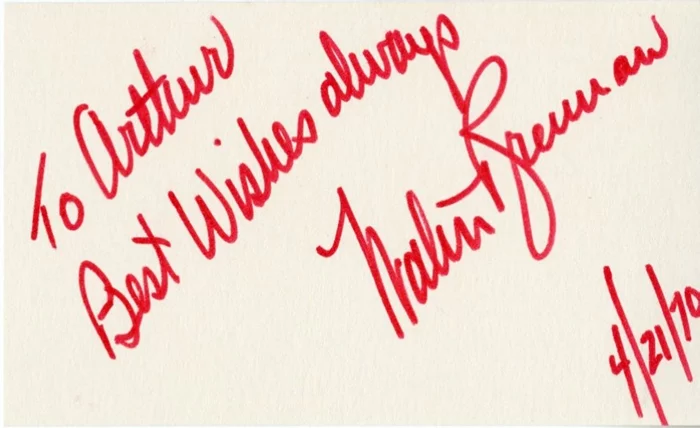 To Arthur
Best Wishes always
Walter Brennan
4/21/70